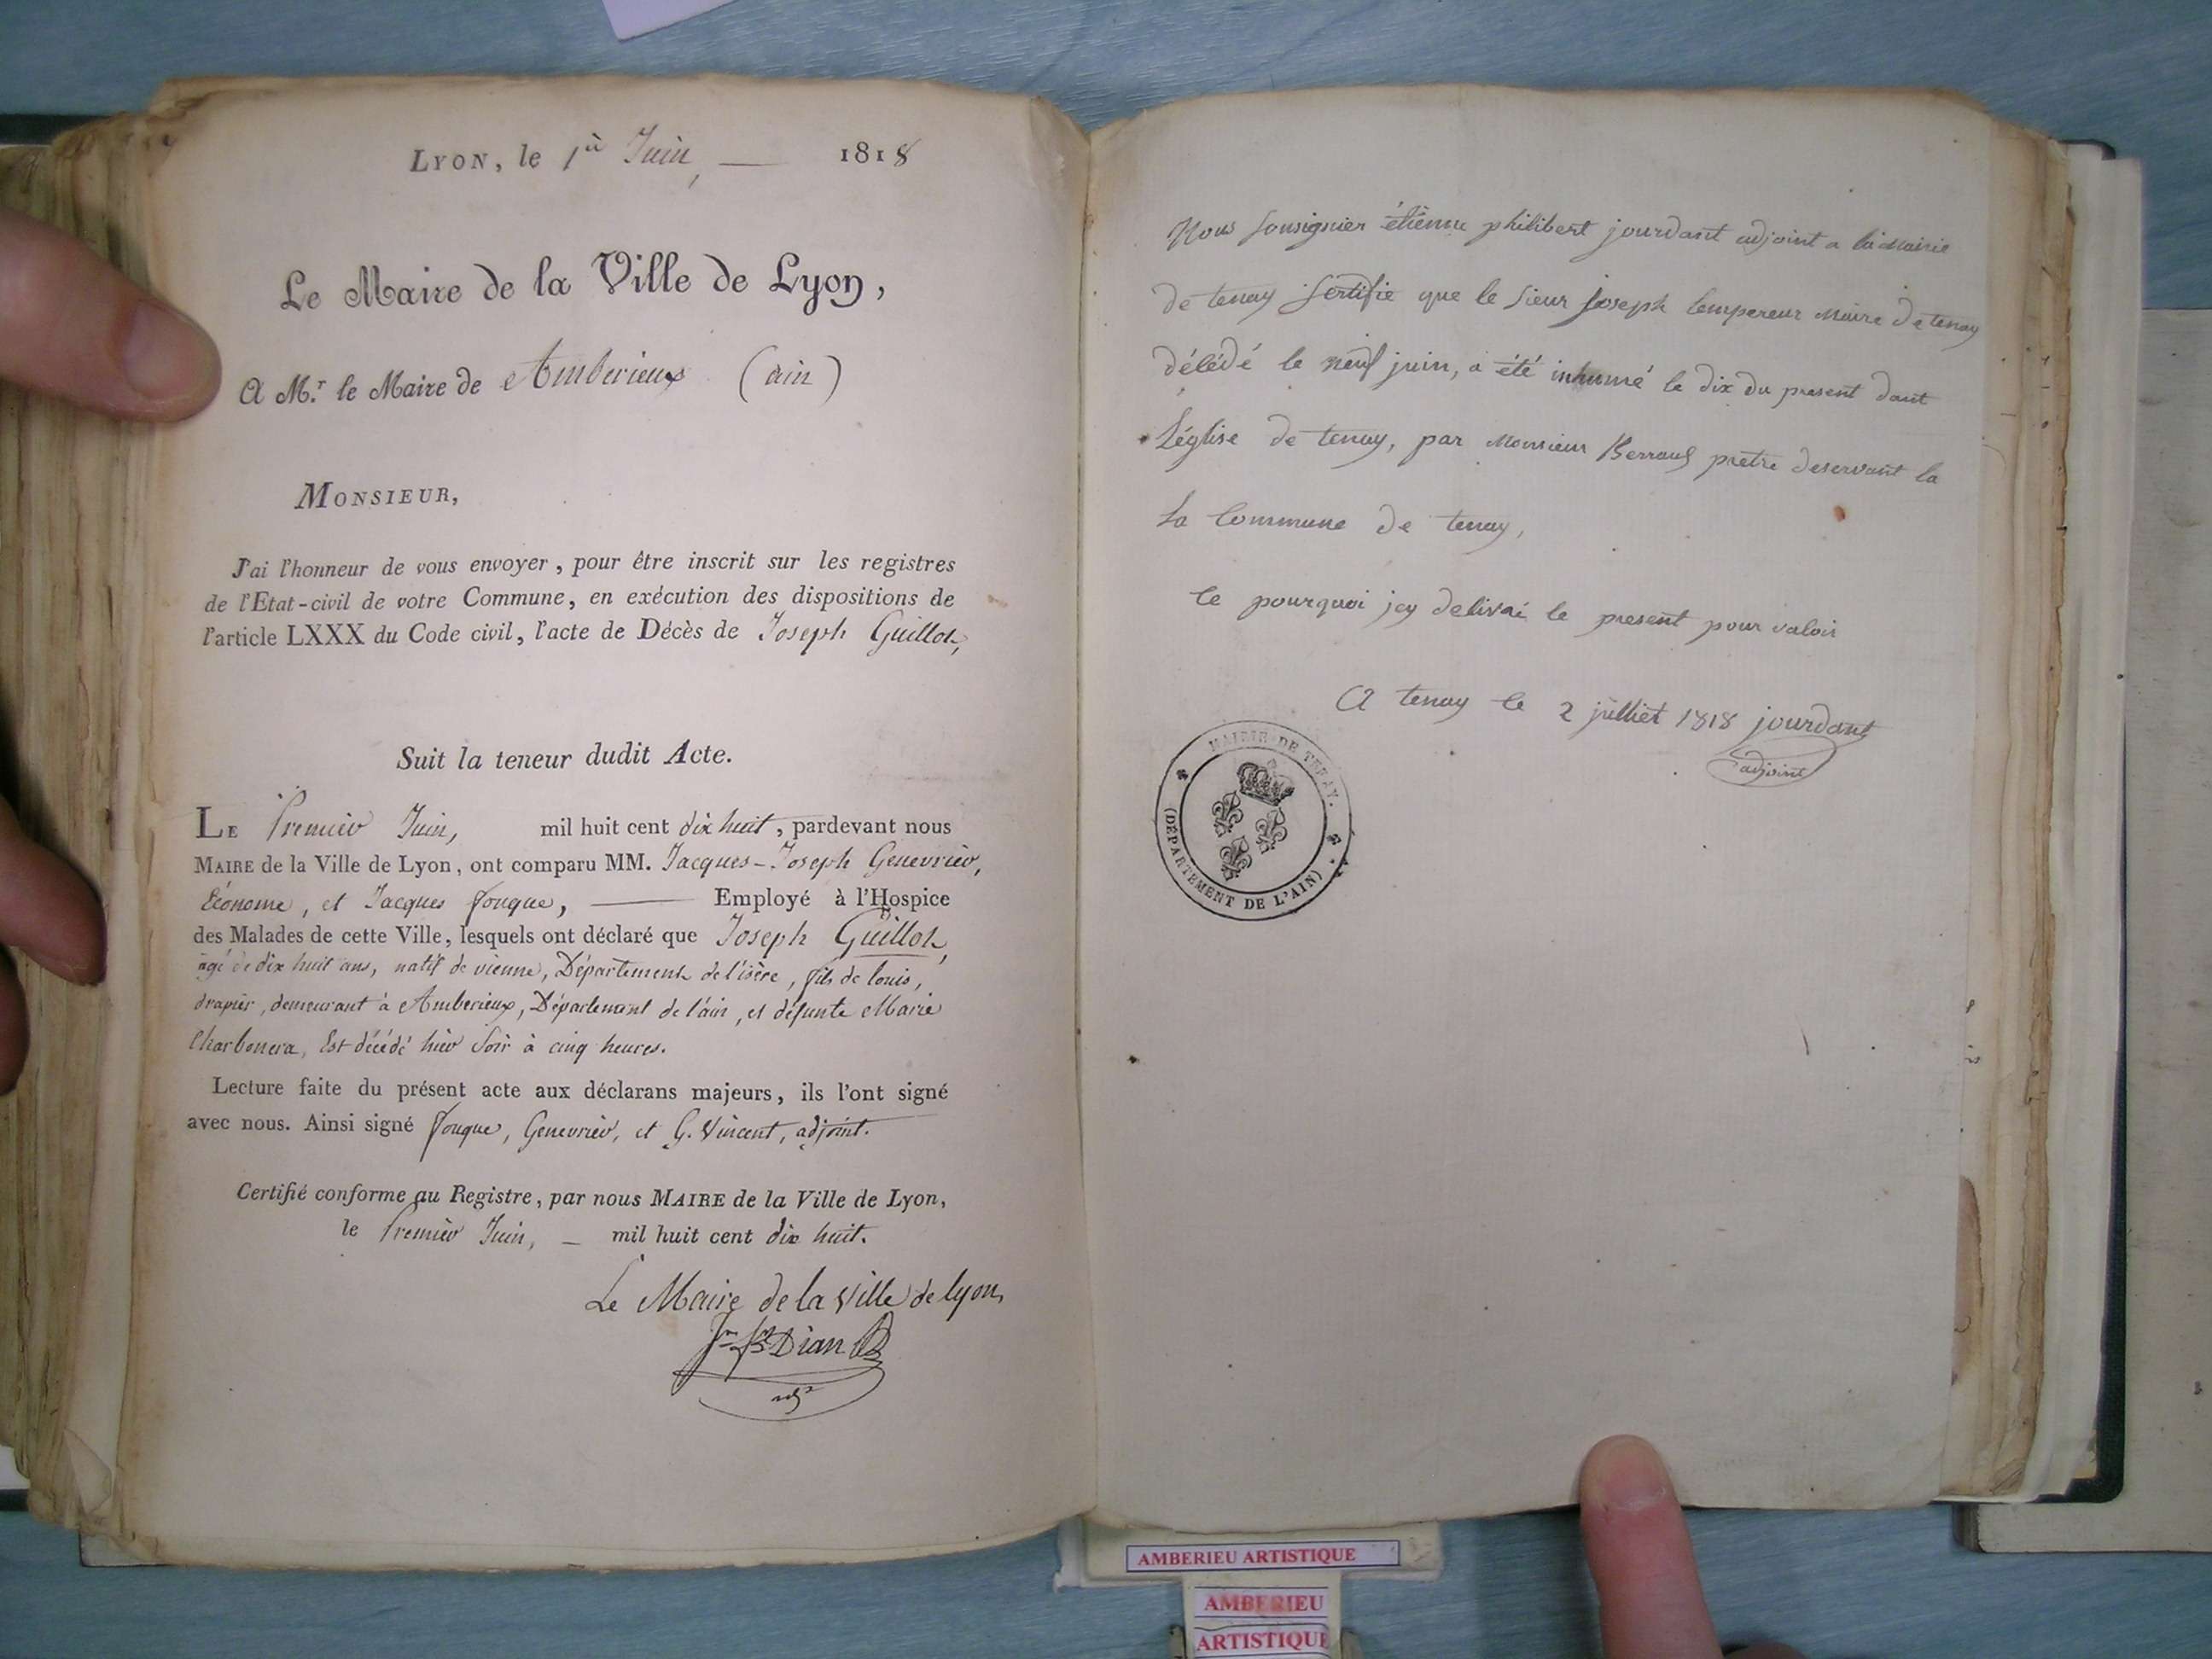 LYON, le 1er Juin, — 1818
Le Maire de la Ville de Lyon,
A M.r le Maire de Amberieux (ain)
MONSIEUR,
J'ai l'honneur de vous envoyer, pour être inscrit sur les registres
de l'Etat-civil de votre Commune, en exécution des dispositions de
l'article LXXX du Code civil, l'acte de Décès de Joseph Guillot,
Suit la teneur dudit Acte.
LE Premier Juin, mil huit cent dix huit, pardevant nous
MAIRE de la Ville de Lyon, ont comparu MM. Jacques-Joseph Genevrier,
Économe, et Jacques fouque, — Employé à l'Hospice
des Malades de cette Ville, lesquels ont déclaré que Joseph Guillot,
agé de dix huit ans, natif de vienne, Département de l'isère, fils de louis,
drapier, demeurant à Amberieux, Département de l'ain, et défunte Marie
Charbonera, Est décédé hier Soir à cinq heures.
Lecture faite du présent acte aux déclarans majeurs, ils l'ont signé
avec nous. Ainsi signé fouque, Genevrier, et G. Vincent, adjoint.
Certifié conforme au Registre, par nous MAIRE de la Ville de Lyon,
le Premier Juin, — mil huit cent dix huit.
Le Maire de la Ville de lyon,
Dian
Nous sousignier étienne philibert jourdant adjoint a la Mairie
de tenay sertifie que le sieur joseph lempereur Maire de tenay
délédé le neuf juin, a été inhumé le dix du present dant
L'église de tenay, par Monsieur pretre deservant la
La Commune de tenay,
Ce pourquoi jey delivré le present pour valoir
A tenay le 2 julliet 1818 jourdant
adjoint
MAIRIE DE TENAY.
(DÉPARTEMENT DE L'AIN)
AMBERIEU ARTISTIQUE
AMBERIEU
ARTISTIQUE